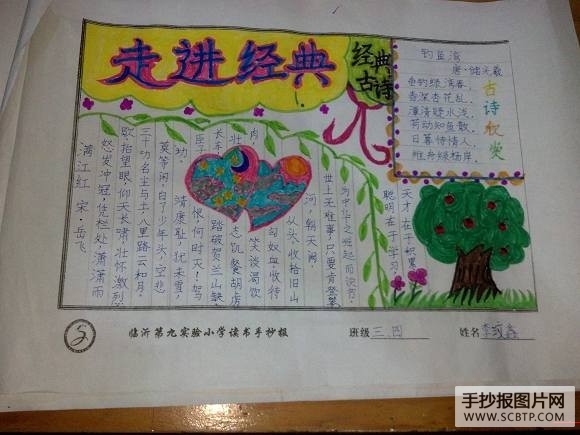 走进经典
经典
古诗
钓鱼湾
唐·储光羲
垂钓绿湾春,
春深杏花乱,
潭清疑水浅,
荷动知鱼散,
日暮待情人,
维舟绿杨岸。
古诗欣赏
满江红 宋·岳飞
怒发冲冠,凭栏处,潇潇雨
歇抬望眼,仰天长啸,壮怀激烈
三十功名尘与土八里路云和月,
莫等闲,白了少年头,空悲
切。靖康耻,犹未雪,
臣子恨,何时灭!驾
长车踏破贺兰山缺,
壮志饥餐胡虏
肉,笑谈渴饮
匈奴血收待
从头,收拾旧山
河,朝天阙
世上无难事,只要肯登攀
为中华之崛起而读书
聪明在于学习,
天才在于积累
临沂第九实验小学读书手抄报
班级 三.四
姓名 李
手抄报图片网
WWW.SCBTP.COM